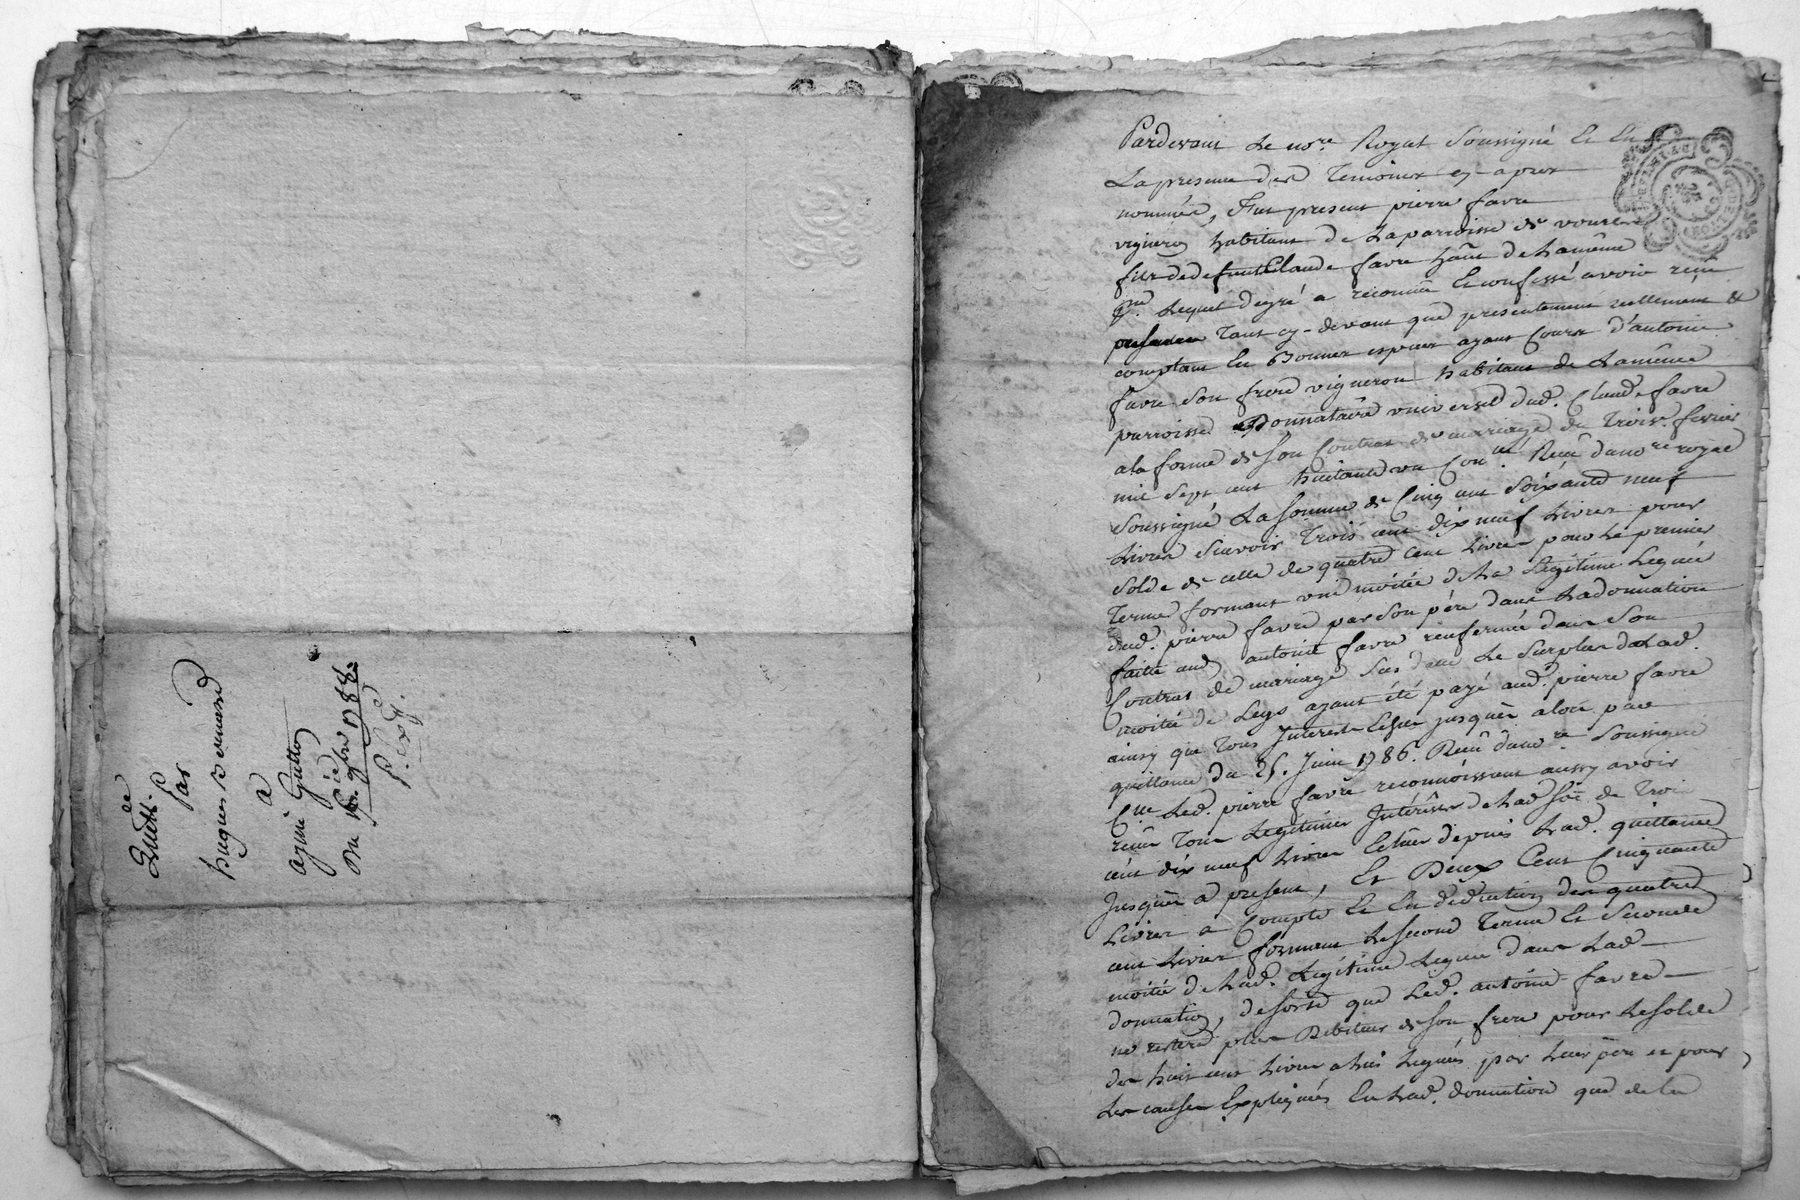 Quitt.ce
par
hugues Bernard
a
aymé Gutton
Du 16. xbre 1788.
P. Exp.
Pardevant Le no.re Royal Soussigné Et En
La presence des Temoins cy-apres
nommés, Fut present pierre favre
vigneron habitant de La parroisse de
fils de defunt Claude favre de La même
p.sse Lequel de gré a reconnu Et confessé avoir reçu
tant cy-devant que presentement reellement &
comptant En Bonnes especes ayant Cours d'antoine
favre Son frere vigneron habitant de La même
parroisse Donnataire universel dud. Claude favre
a la forme de Son Contrat de mariage du Trois fevrier
mil Sept cent huitante un Con.lé Reçu du no.re royal
Soussigné La Somme de Cinq cent Soixante neuf
Livres Scavoir Trois cent dix neuf Livres pour
Solde de celle de quatre Cent Livres pour Le premier
Terme formant une moitié de La Légitime Leguée
aud. pierre favre par Son père dans La donnation
faitte aud. antoine favre renfermée dans Son
Contrat de mariage Sus datté Le Surplus de Lad.
moitié de Legs ayant été payé aud. pierre favre
ainsy que Tous Interets Echus jusques alors par
quittance du 25. Juin 1786. Recu du no.re Soussigné
C.lle Led. pierre favre reconnoissant aussy avoir
reçu Tous Legitimes Intérêts de Lad. Soe de Trois
cent dix neuf Livres Echus depuis Lad. quittance
Jusques a present, Et Deux Cent Cinquante
Livres a Compte Et En déduction des quatre
cent Livres formant Le Second Terme Et Seconde
moitié de Lad. Légitime Leguée dans Lad.
donnation, de Sorte que Led. antoine favre
ne restera plus Débiteur de Son frere pour Le Solde
des huit cent Livres a Lui Legués par Leur père et pour
Les causes Expliquées En Lad. donnation que de La